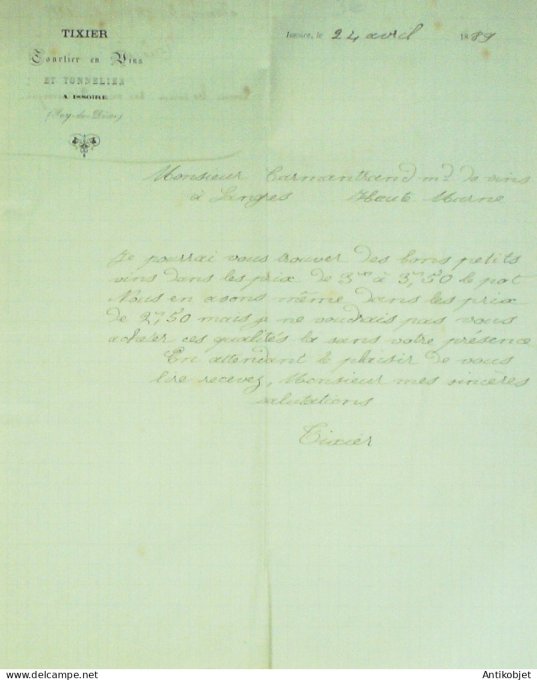 TIXIER
Courtier en Vins
ET TONNELIER
A ISSOIRE
(Puy-de-Dôme)
Issoire, le 24 avril 1889
Monsieur Carmantrand md de vins
à Langres Haute Marne
Je pourrai vous trouver des bons petits
vins dans les prix de 3 à 3,50 le pot
Nous en avons même dans les prix
de 2,50 mais je ne voudrais pas vous
acheter ces qualités la sans votre présence
En attendant le plaisir de vous
lire recevez, Monsieur mes sincères
salutations
Tixier
www.delcampe.net
Antikobjet